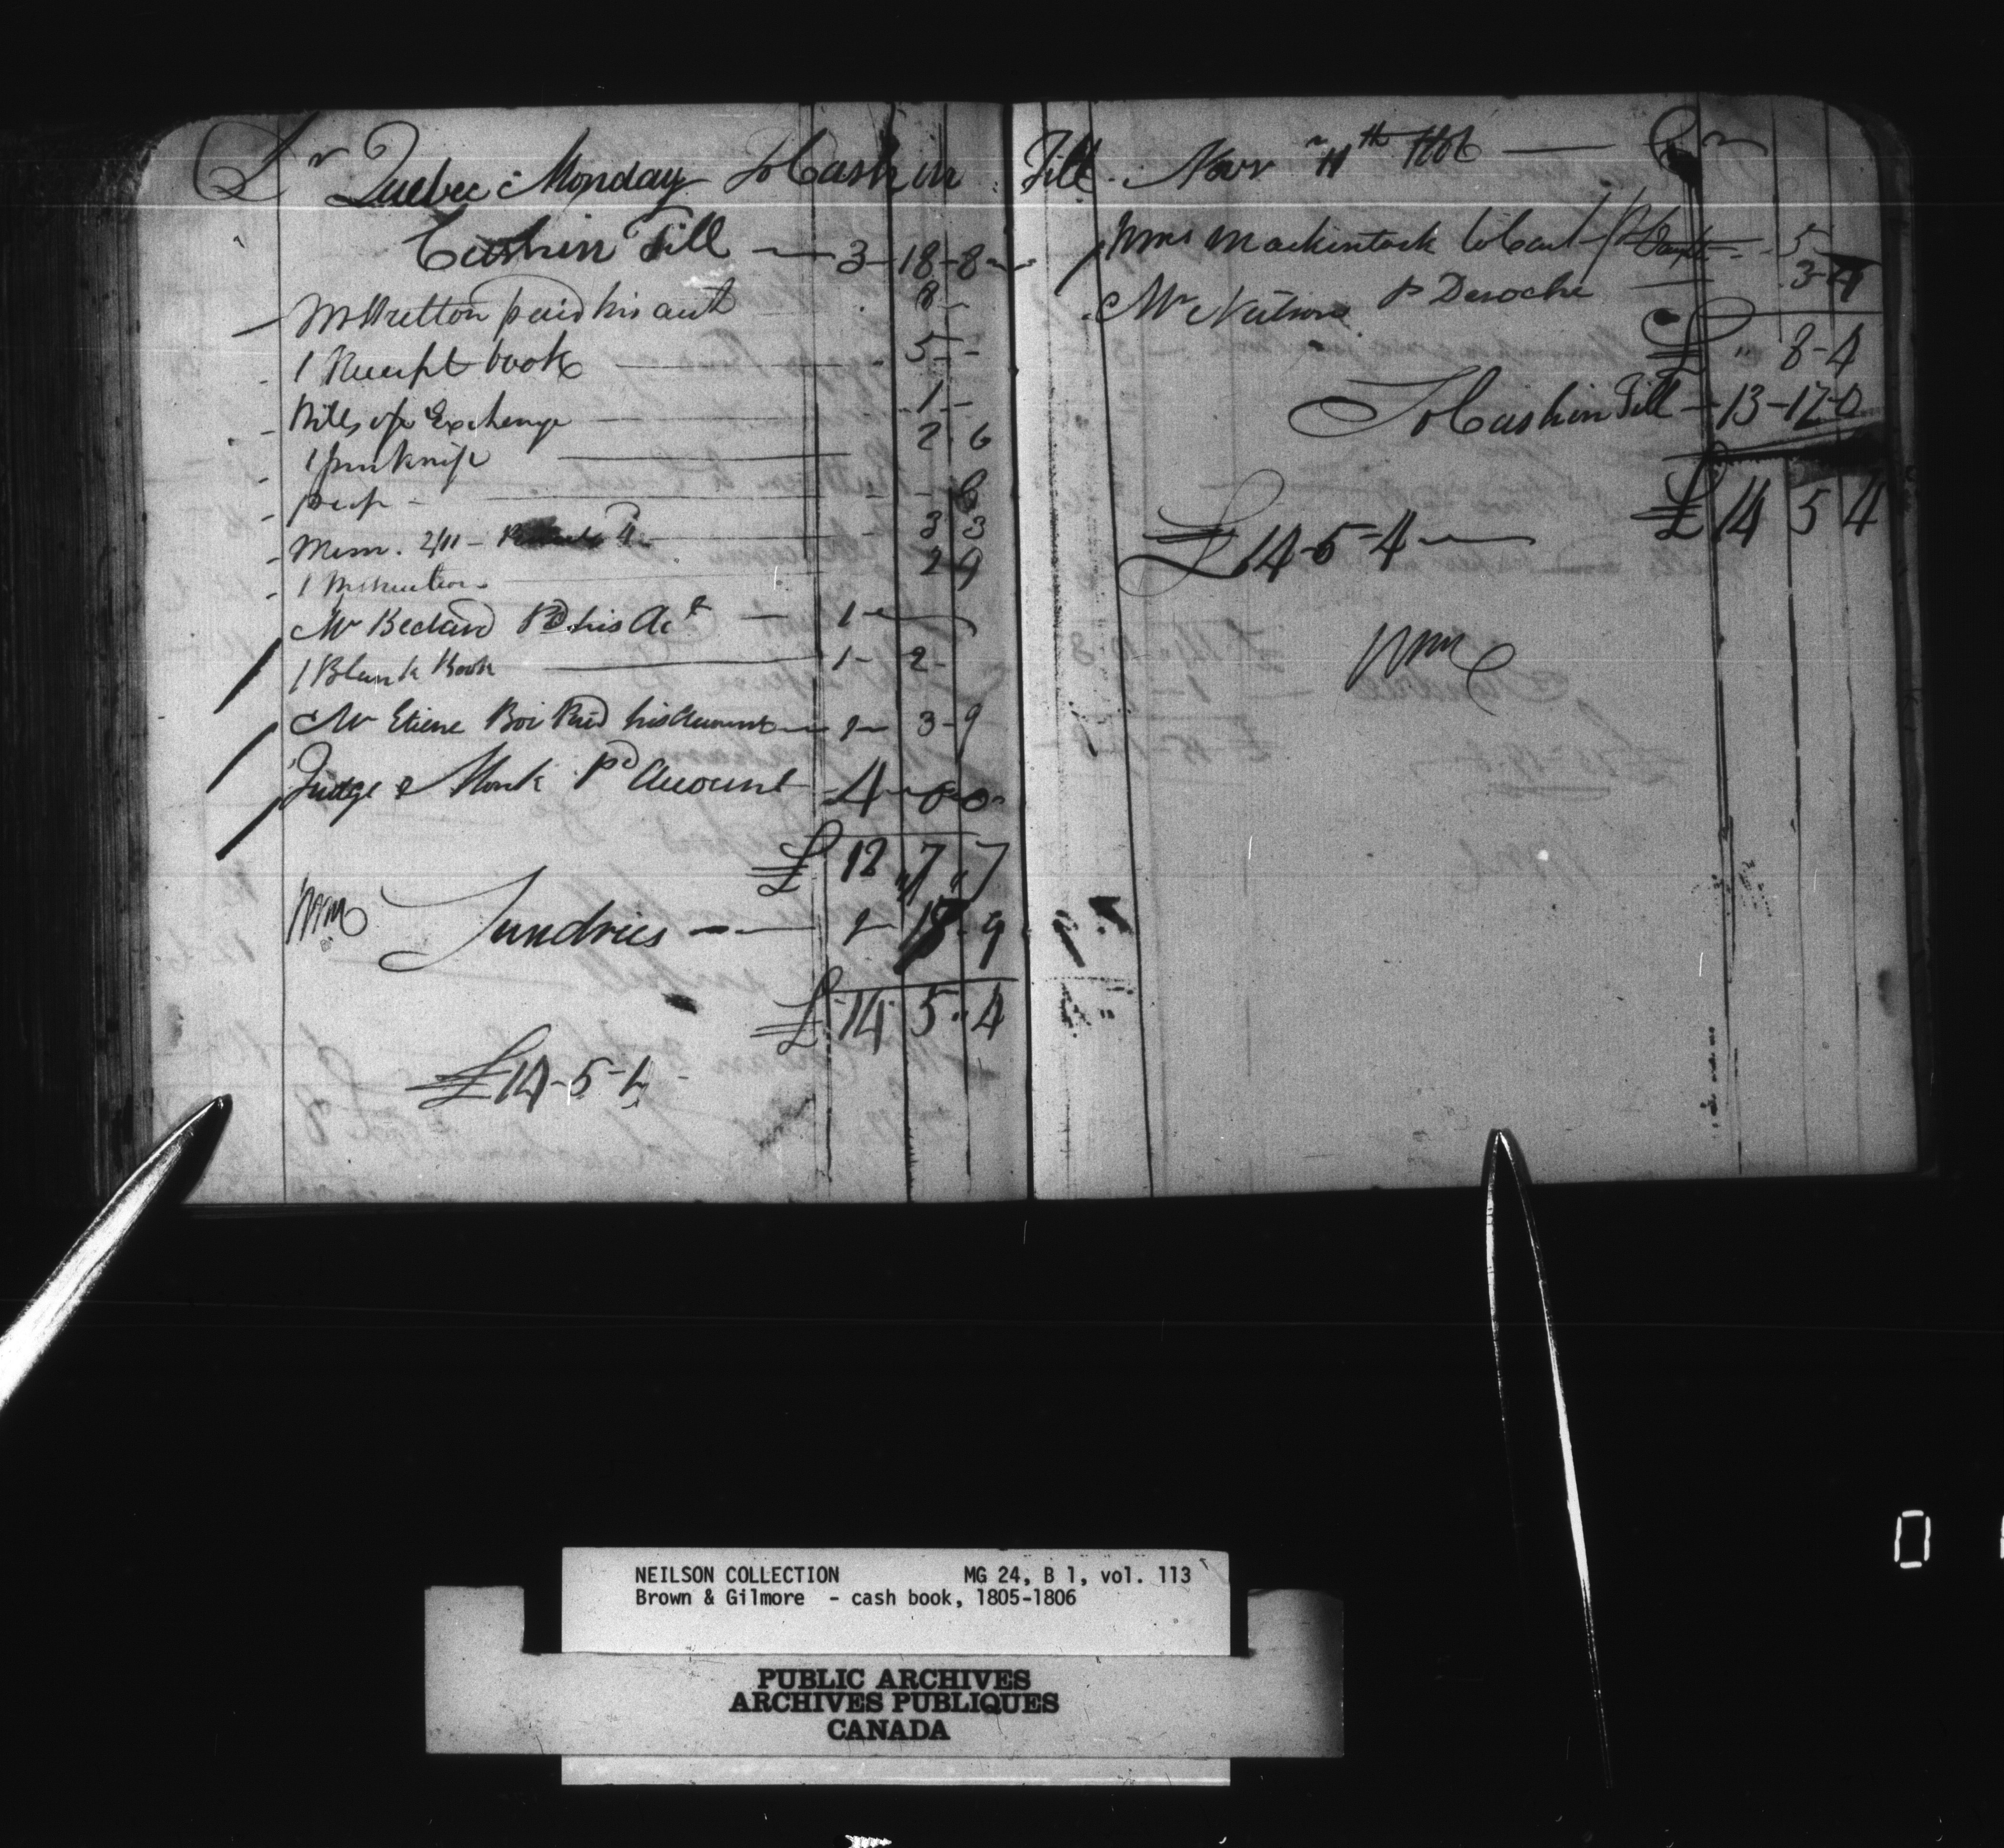 Dr Quebec Monday To Cash in Till. Novr 11th 1806 — Cr
Cash in Till — 3-18-8
Mr Stretton paid his act 8-
1 Receipt book 5-
Bills of Exchange 1-
1 penknife 2-6
3 3
1 Instruction 2 9
Mr Bedard Pd his Act — 1-
1 Blank Book 1- 2-
Mr Etiene Boi Paid his account 3-9
Judge Monk Pd Account 4-0-0
£ 12 7 7
Wm Sundries 1-17-9
£ 14 5 4
£14-5-4
Mrs Mackintosh to Cash 5-
Mr Neilson P Deroche 3-4
£ " 8-4
To Cash in Till 13-17-0
£ 14 5 4
£ 14-5-4
Wm
NEILSON COLLECTION MG 24, B 1, vol. 113
Brown & Gilmore - cash book, 1805-1806
PUBLIC ARCHIVES
ARCHIVES PUBLIQUES
CANADA
0